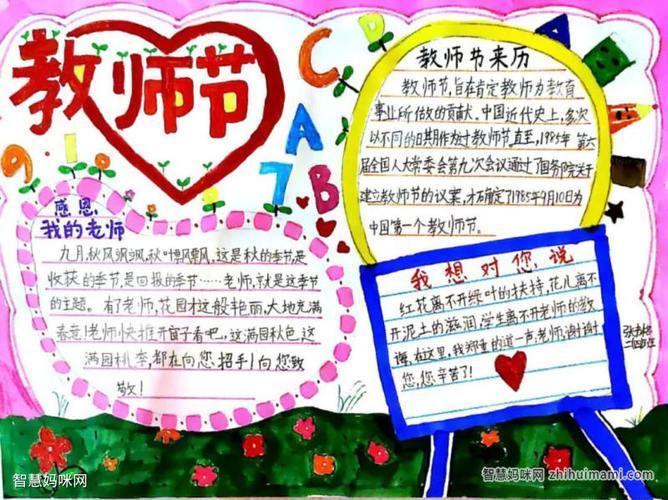 教师节
C
D
A
A
B
9
1
0
1
7
教师节来历
教师节,旨在肯定教师为教育
事业所做的贡献。中国近代史上,多次
以不同的日期作为过教师节。直至,1985年 第六
届全国人大常委会第九次会议通过了国务院关于
建立教师节的议案,才石角定了1985年9月10日为
中国第一个教师节。
感恩
我的老师
九月,秋风飒飒,秋叶飘飘,这是秋的季节,是
收获的季节,是回报的季节……老师,就是这季节
的主题。有了老师,花园才这般艳丽,大地充满
春意!老师快推开窗子看吧,这满园秋色,这
满园桃李,都在向您招手!向您致
敬!
我想对您说
红花离不开绿叶的扶持,花儿离不
开泥土的滋润,学生离不开老师的教
诲。在这里,我郑重的道一声,老师,谢谢
您,您辛苦了!
智慧妈咪网
智慧妈咪网 zhihuimami.com